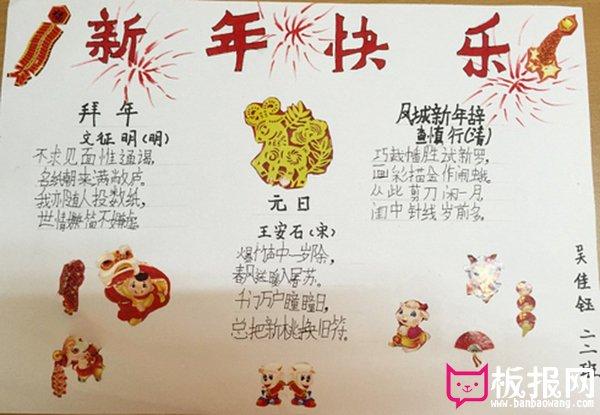 新年快乐
拜年
文征明(明)
不求见面惟通谒,
名纸朝来满敝庐。
我亦随人投数纸,
世情嫌简不嫌虚。
元日
王安石(宋)
爆竹声中一岁除,
春风送暖入屠苏。
千门万户曈曈日,
总把新桃换旧符。
凤城新年辞
查慎行(清)
巧裁幡胜试新罗,
画彩描金作闹蛾。
从此剪刀闲一月,
闺中针线岁前多。
吴佳钰 二二班
板报网
www.banbaowang.com